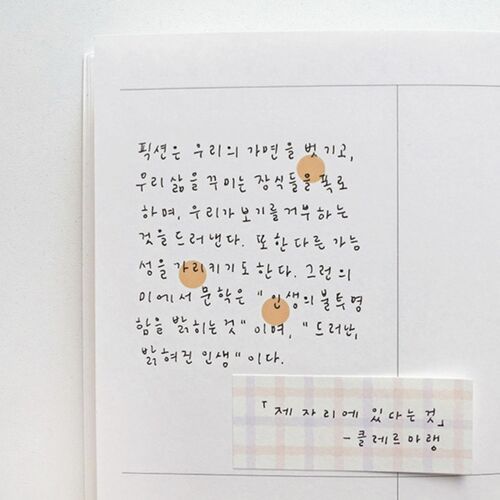 픽션은 우리의 가면을 벗기고,
우리 삶을 꾸미는 장식들을 폭로
하며, 우리가 보기를 거부하는
것을 드러낸다. 또한 다른 가능
성을 가리키기도 한다. 그런 의
미에서 문학은 "인생의 불투명
함을 밝히는 것" 이며, "드러난,
밝혀진 인생" 이다.
「제 자리에 있다는 것」
- 클레르 마랭